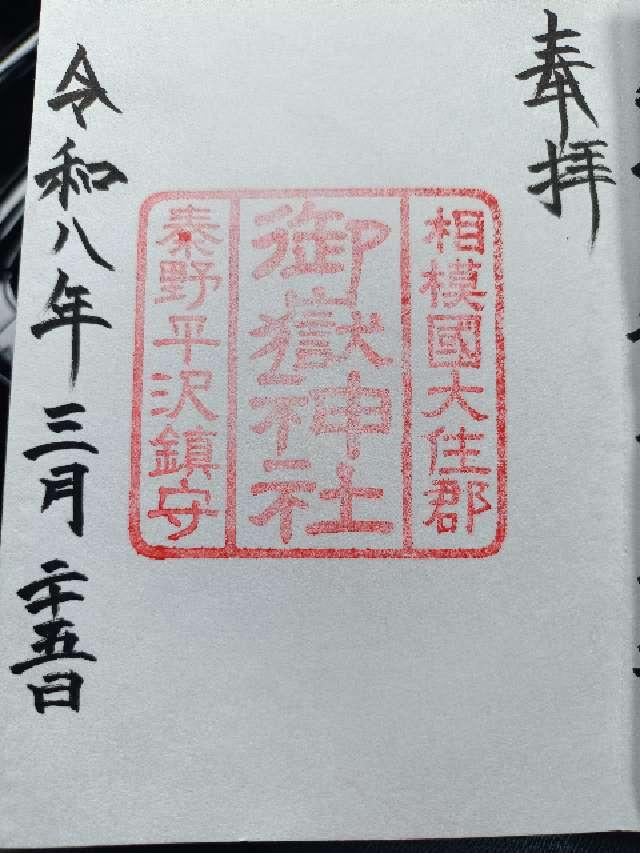 奉拝
相模國大住郡
御嶽神社
秦野平沢鎮守
令和八年三月二十五日